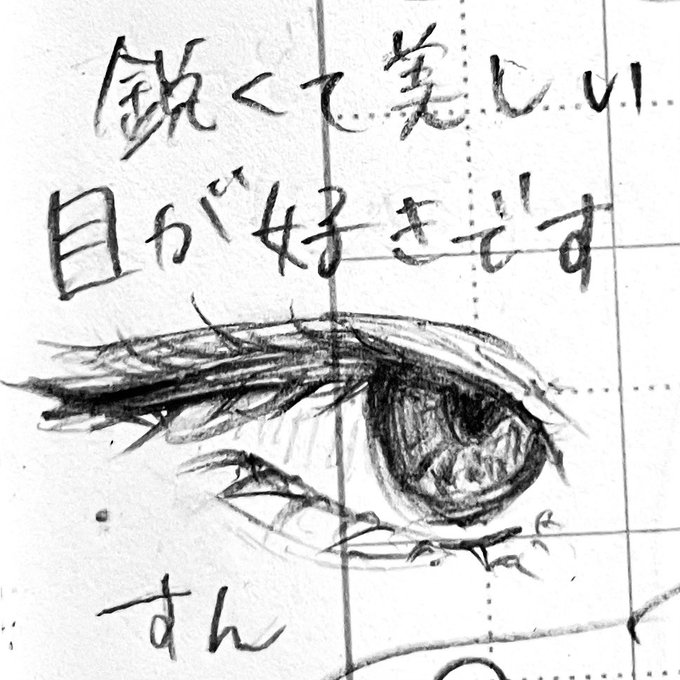 鋭くて美しい
目が好きです
すん